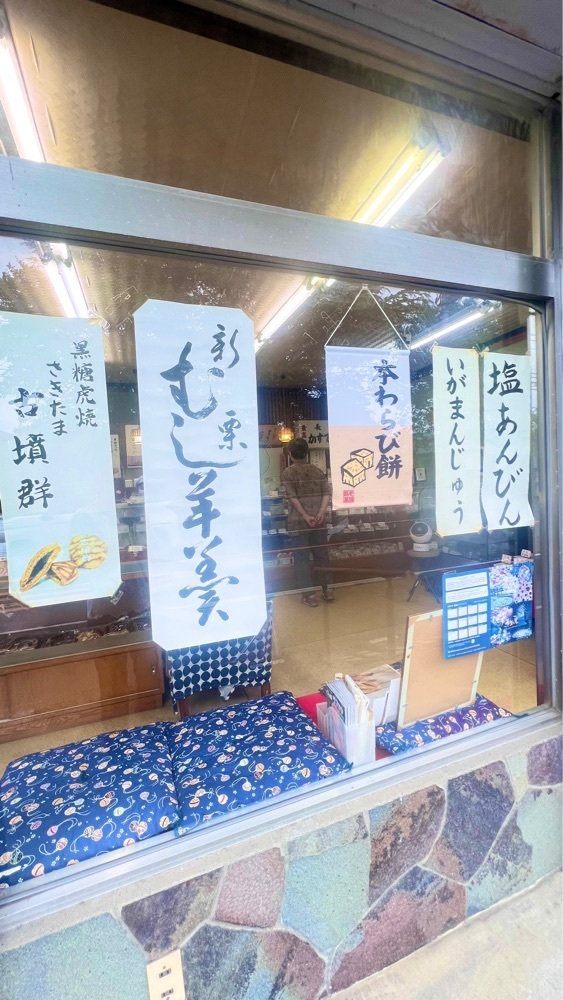 塩あんびん
いがまんじゅう
本わらび餅
新
栗
むし羊羹
黒糖虎焼
さきたま
古墳群